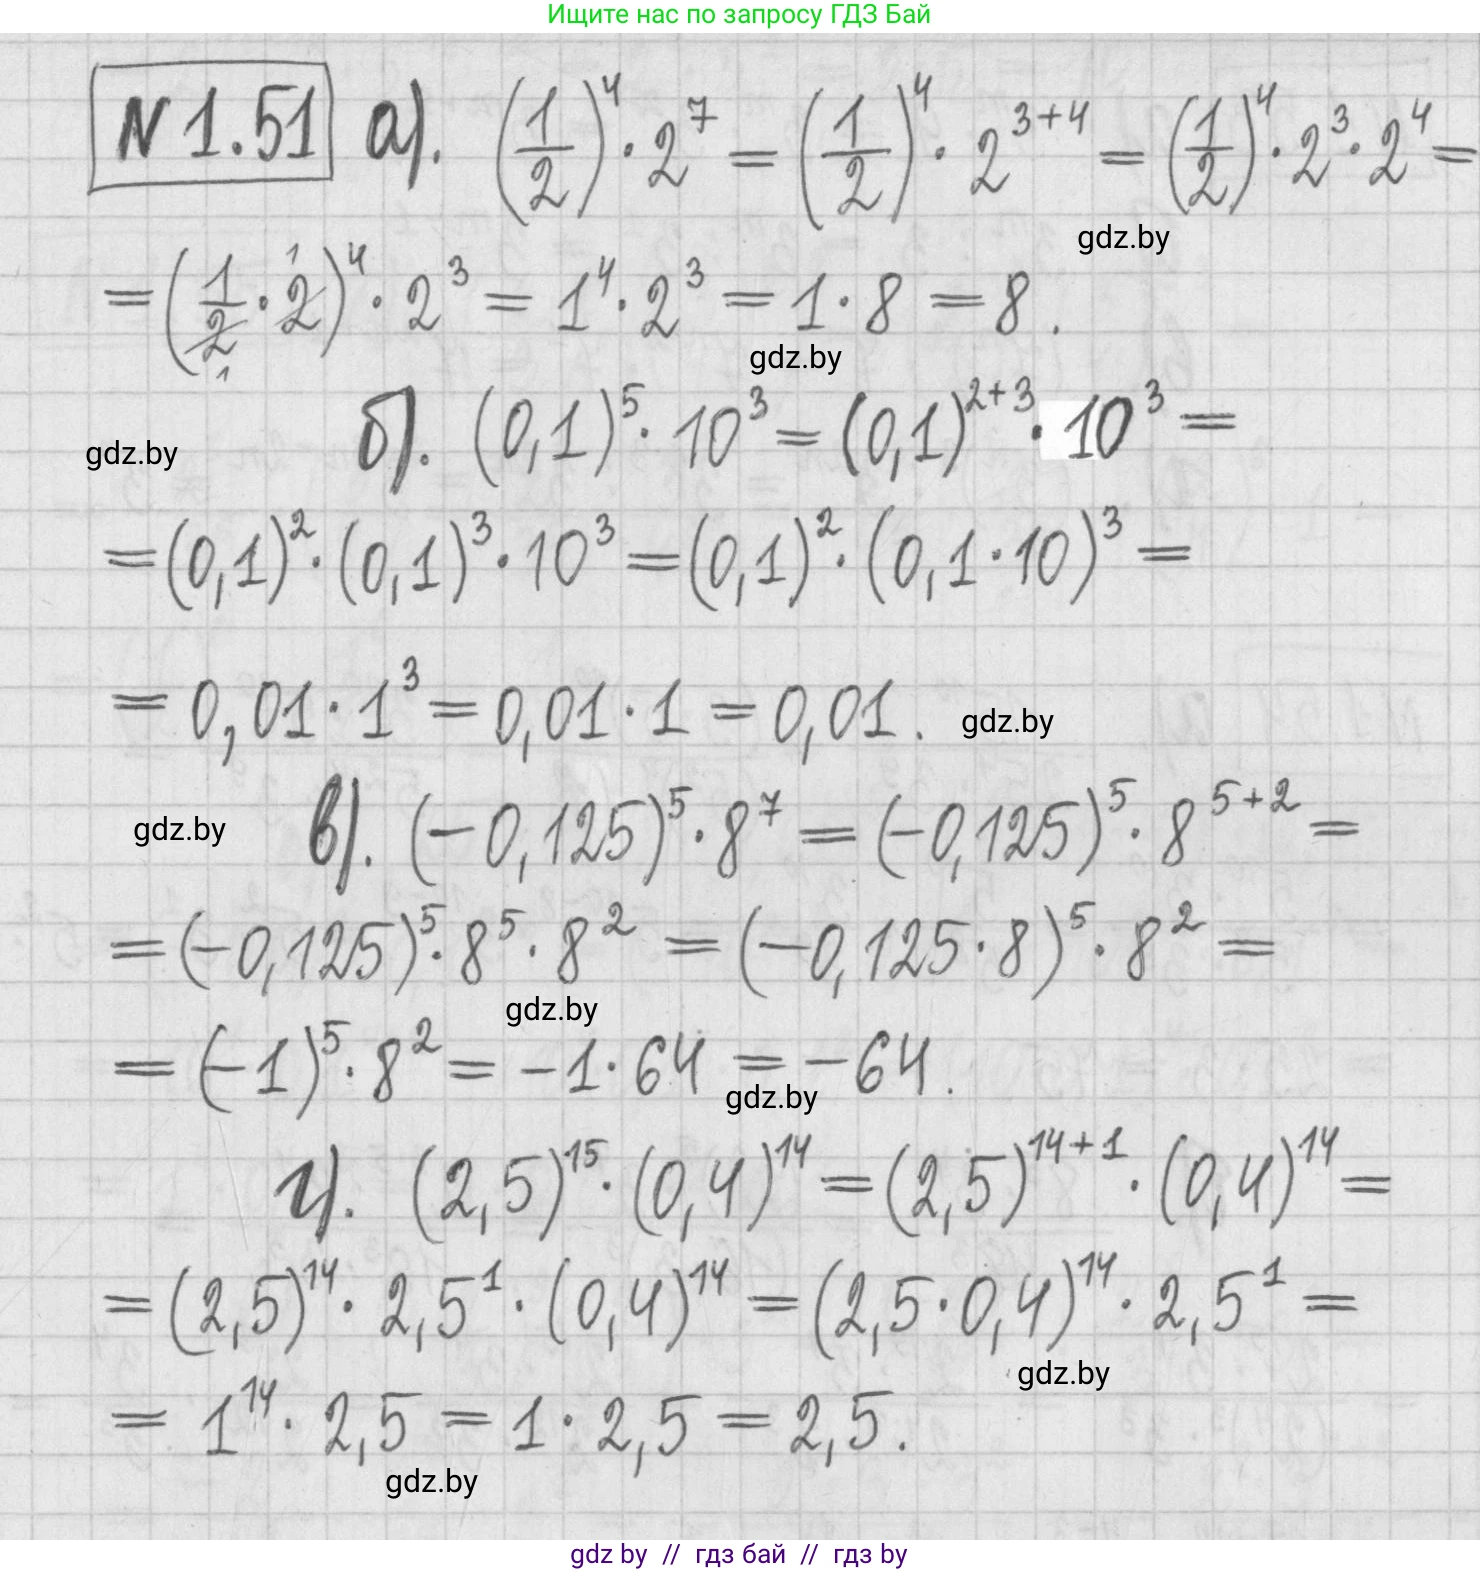 Ищите нас по запросу ГДЗ Бай
N 1.51 а). (1/2)⁴ · 2⁷ = (1/2)⁴ · 2³⁺⁴ = (1/2)⁴ · 2³ · 2⁴ =
gdz.by
= (1/2 · 2)⁴ · 2³ = 1⁴ · 2³ = 1 · 8 = 8.
gdz.by
б). (0,1)⁵ · 10³ = (0,1)²⁺³ · 10³ =
gdz.by
= (0,1)² · (0,1)³ · 10³ = (0,1)² · (0,1 · 10)³ =
= 0,01 · 1³ = 0,01 · 1 = 0,01. gdz.by
gdz.by в). (-0,125)⁵ · 8⁷ = (-0,125)⁵ · 8⁵⁺² =
= (-0,125)⁵ · 8⁵ · 8² = (-0,125 · 8)⁵ · 8² =
gdz.by
= (-1)⁵ · 8² = -1 · 64 = -64.
gdz.by
г). (2,5)¹⁵ · (0,4)¹⁴ = (2,5)¹⁴⁺¹ · (0,4)¹⁴ =
= (2,5)¹⁴ · 2,5¹ · (0,4)¹⁴ = (2,5 · 0,4)¹⁴ · 2,5¹ =
gdz.by
= 1¹⁴ · 2,5 = 1 · 2,5 = 2,5.
gdz.by
gdz by // гдз бай // гдз by